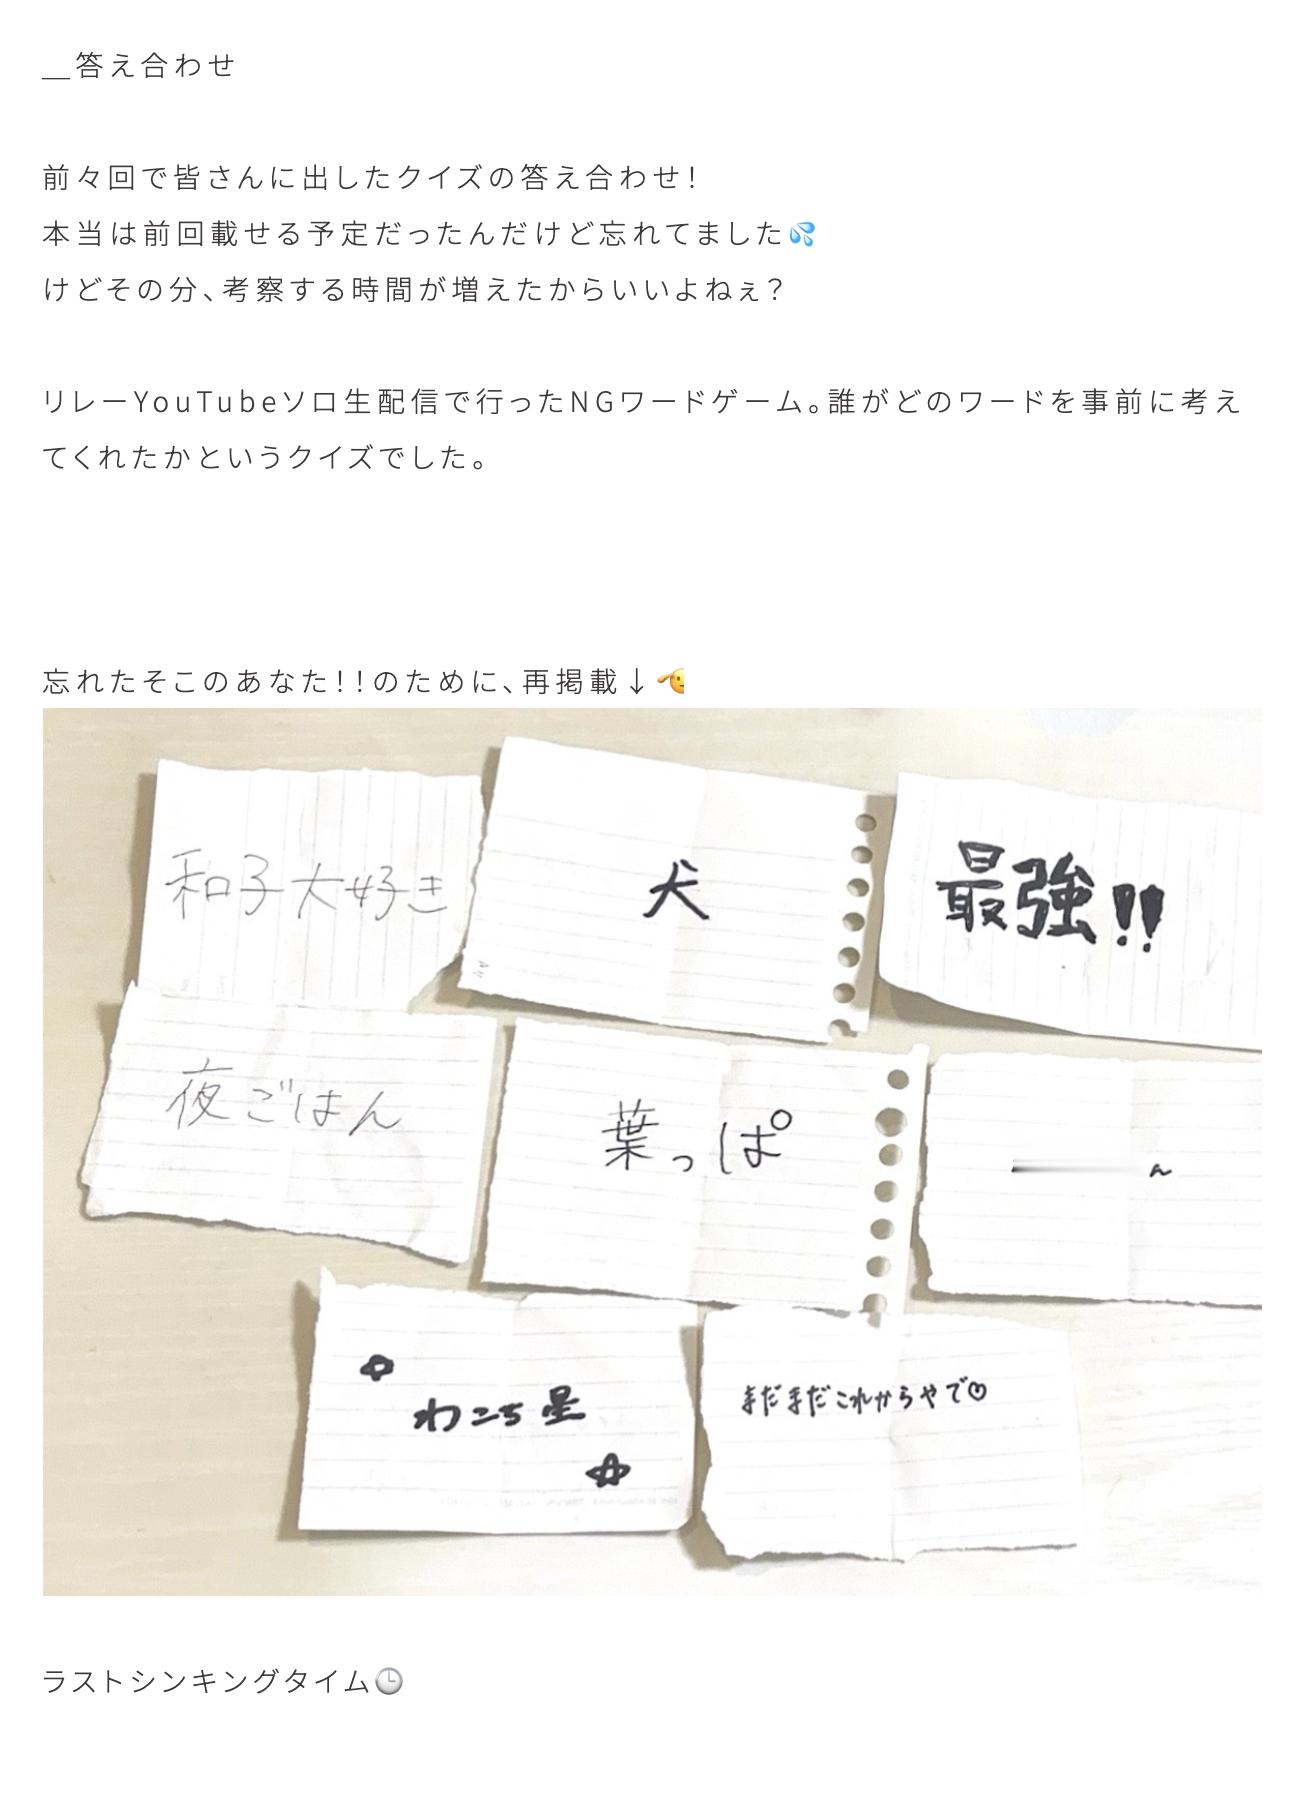 ＿答え合わせ
前々回で皆さんに出したクイズの答え合わせ！
本当は前回載せる予定だったんだけど忘れてました💦
けどその分、考察する時間が増えたからいいよねぇ？
リレーYouTubeソロ生配信で行ったNGワードゲーム。誰がどのワードを事前に考え
てくれたかというクイズでした。
忘れたそこのあなた！！のために、再掲載↓🫡
和子大好き
犬
最強!!
夜ごはん
葉っぱ
ん
わこち星
まだまだこれからやで♡
ラストシンキングタイム🕒